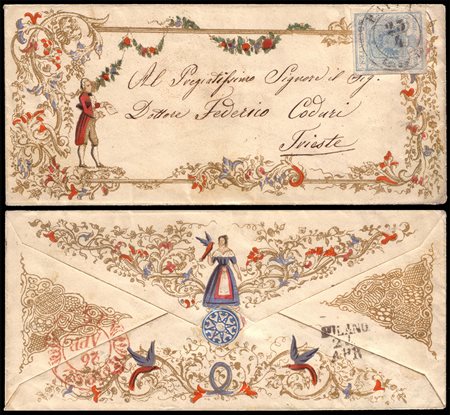 23
Al Pregiatissimo Signore il Sig.
Dottore Federico Coduri
Trieste
MILANO
APR